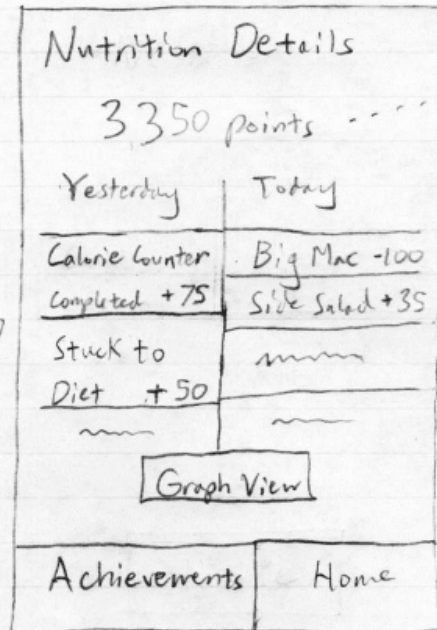 Nutrition Details
3350 points
Yesterday
Today
Calorie Counter
Completed +75
Big Mac -100
Side Salad +35
Stuck to
Diet +50
Graph View
Achievements
Home